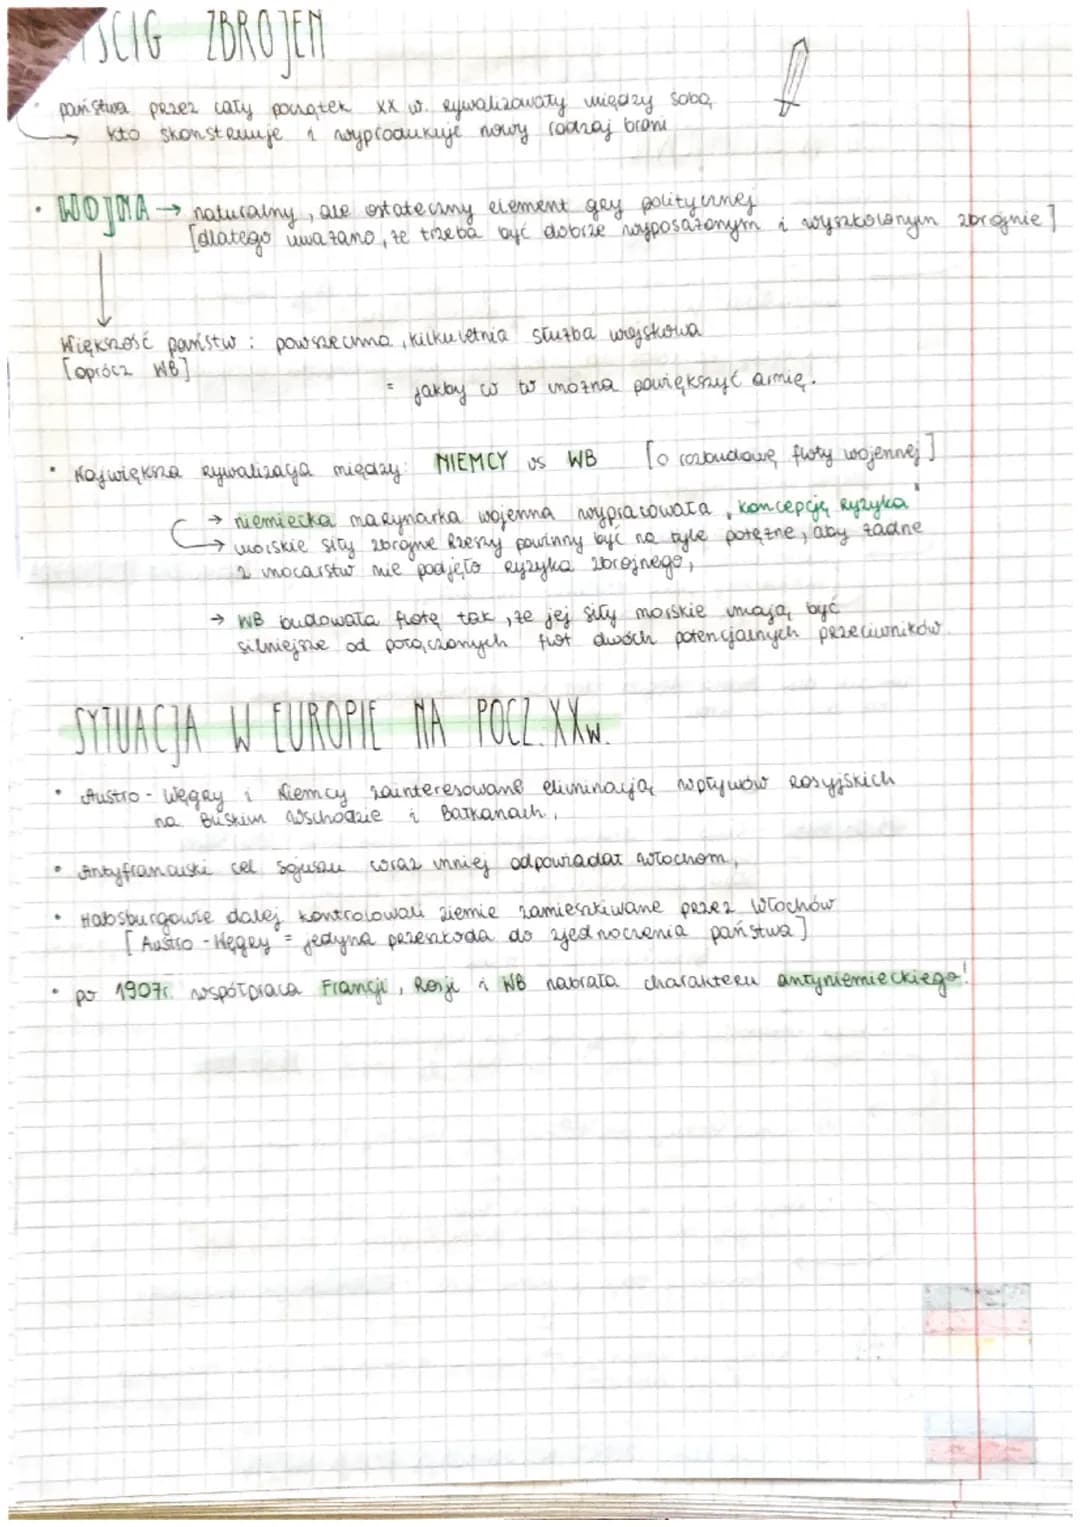 WYŚCIG ZBROJEŃ
• państwa przez cały początek XX w. rywalizowały między sobą
→ kto skonstruuje i wyprodukuje nowy rodzaj broni
• WOJNA → naturalny, ale ostateczny element gry politycznej
[dlatego uważano, że trzeba być dobrze wyposażonym i wyszkolonym zbrojnie]
Większość państw : powszechna, kilkuletnia służba wojskowa
[oprócz WB]
= jakby co to można powiększyć armię.
• Największa rywalizacja między: NIEMCY vs WB [o rozbudowę floty wojennej]
→ niemiecka marynarka wojenna wypracowała „koncepcję ryzyka"
→ morskie siły zbrojne Rzeszy powinny być na tyle potężne, aby żadne
z mocarstw nie podjęło ryzyka zbrojnego,
→ WB budowała flotę tak, że jej siły morskie mają być
silniejsze od połączonych flot dwóch potencjalnych przeciwników.
SYTUACJA W EUROPIE NA POCZ. XXw.
• Austro-Węgry i Niemcy zainteresowane eliminacją wpływów rosyjskich
na Bliskim Wschodzie i Bałkanach,
• Antyfrancuski cel sojuszu coraz mniej odpowiadał Włochom,
• Habsburgowie dalej kontrolowali ziemie zamieszkiwane przez Włochów
[Austro-Węgry = jedyna przeszkoda do zjednoczenia państwa]
• po 1907r. współpraca Francji, Rosji i WB nabrała charakteru antyniemieckiego!